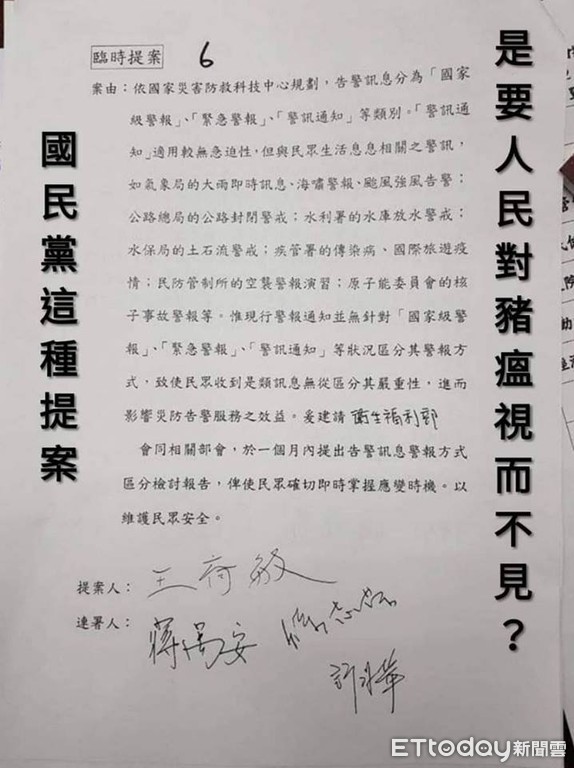 是要人民對豬瘟視而不見？
國民黨這種提案
臨時提案 6
案由：依國家災害防救科技中心規劃，告警訊息分為「國家
級警報」、「緊急警報」、「警訊通知」等類別。「警訊通
知」適用較無急迫性，但與民眾生活息息相關之警訊，
如氣象局的大雨即時訊息、海嘯警報、颱風強風告警；
公路總局的公路封閉警戒；水利署的水庫放水警戒；
水保局的土石流警戒；疾管署的傳染病、國際旅遊疫
情；民防管制所的空襲警報演習；原子能委員會的核
子事故警報等。惟現行警報通知並無針對「國家級警
報」、「緊急警報」、「警訊通知」等狀況區分其警報方
式，致使民眾收到是類訊息無從區分其嚴重性，進而
影響災防告警服務之效益。爰建請衛生福利部
會同相關部會，於一個月內提出告警訊息警報方式
區分檢討報告，俾使民眾確切即時掌握應變時機。以
維護民眾安全。
提案人：
連署人：蔣萬安
ETtoday新聞雲